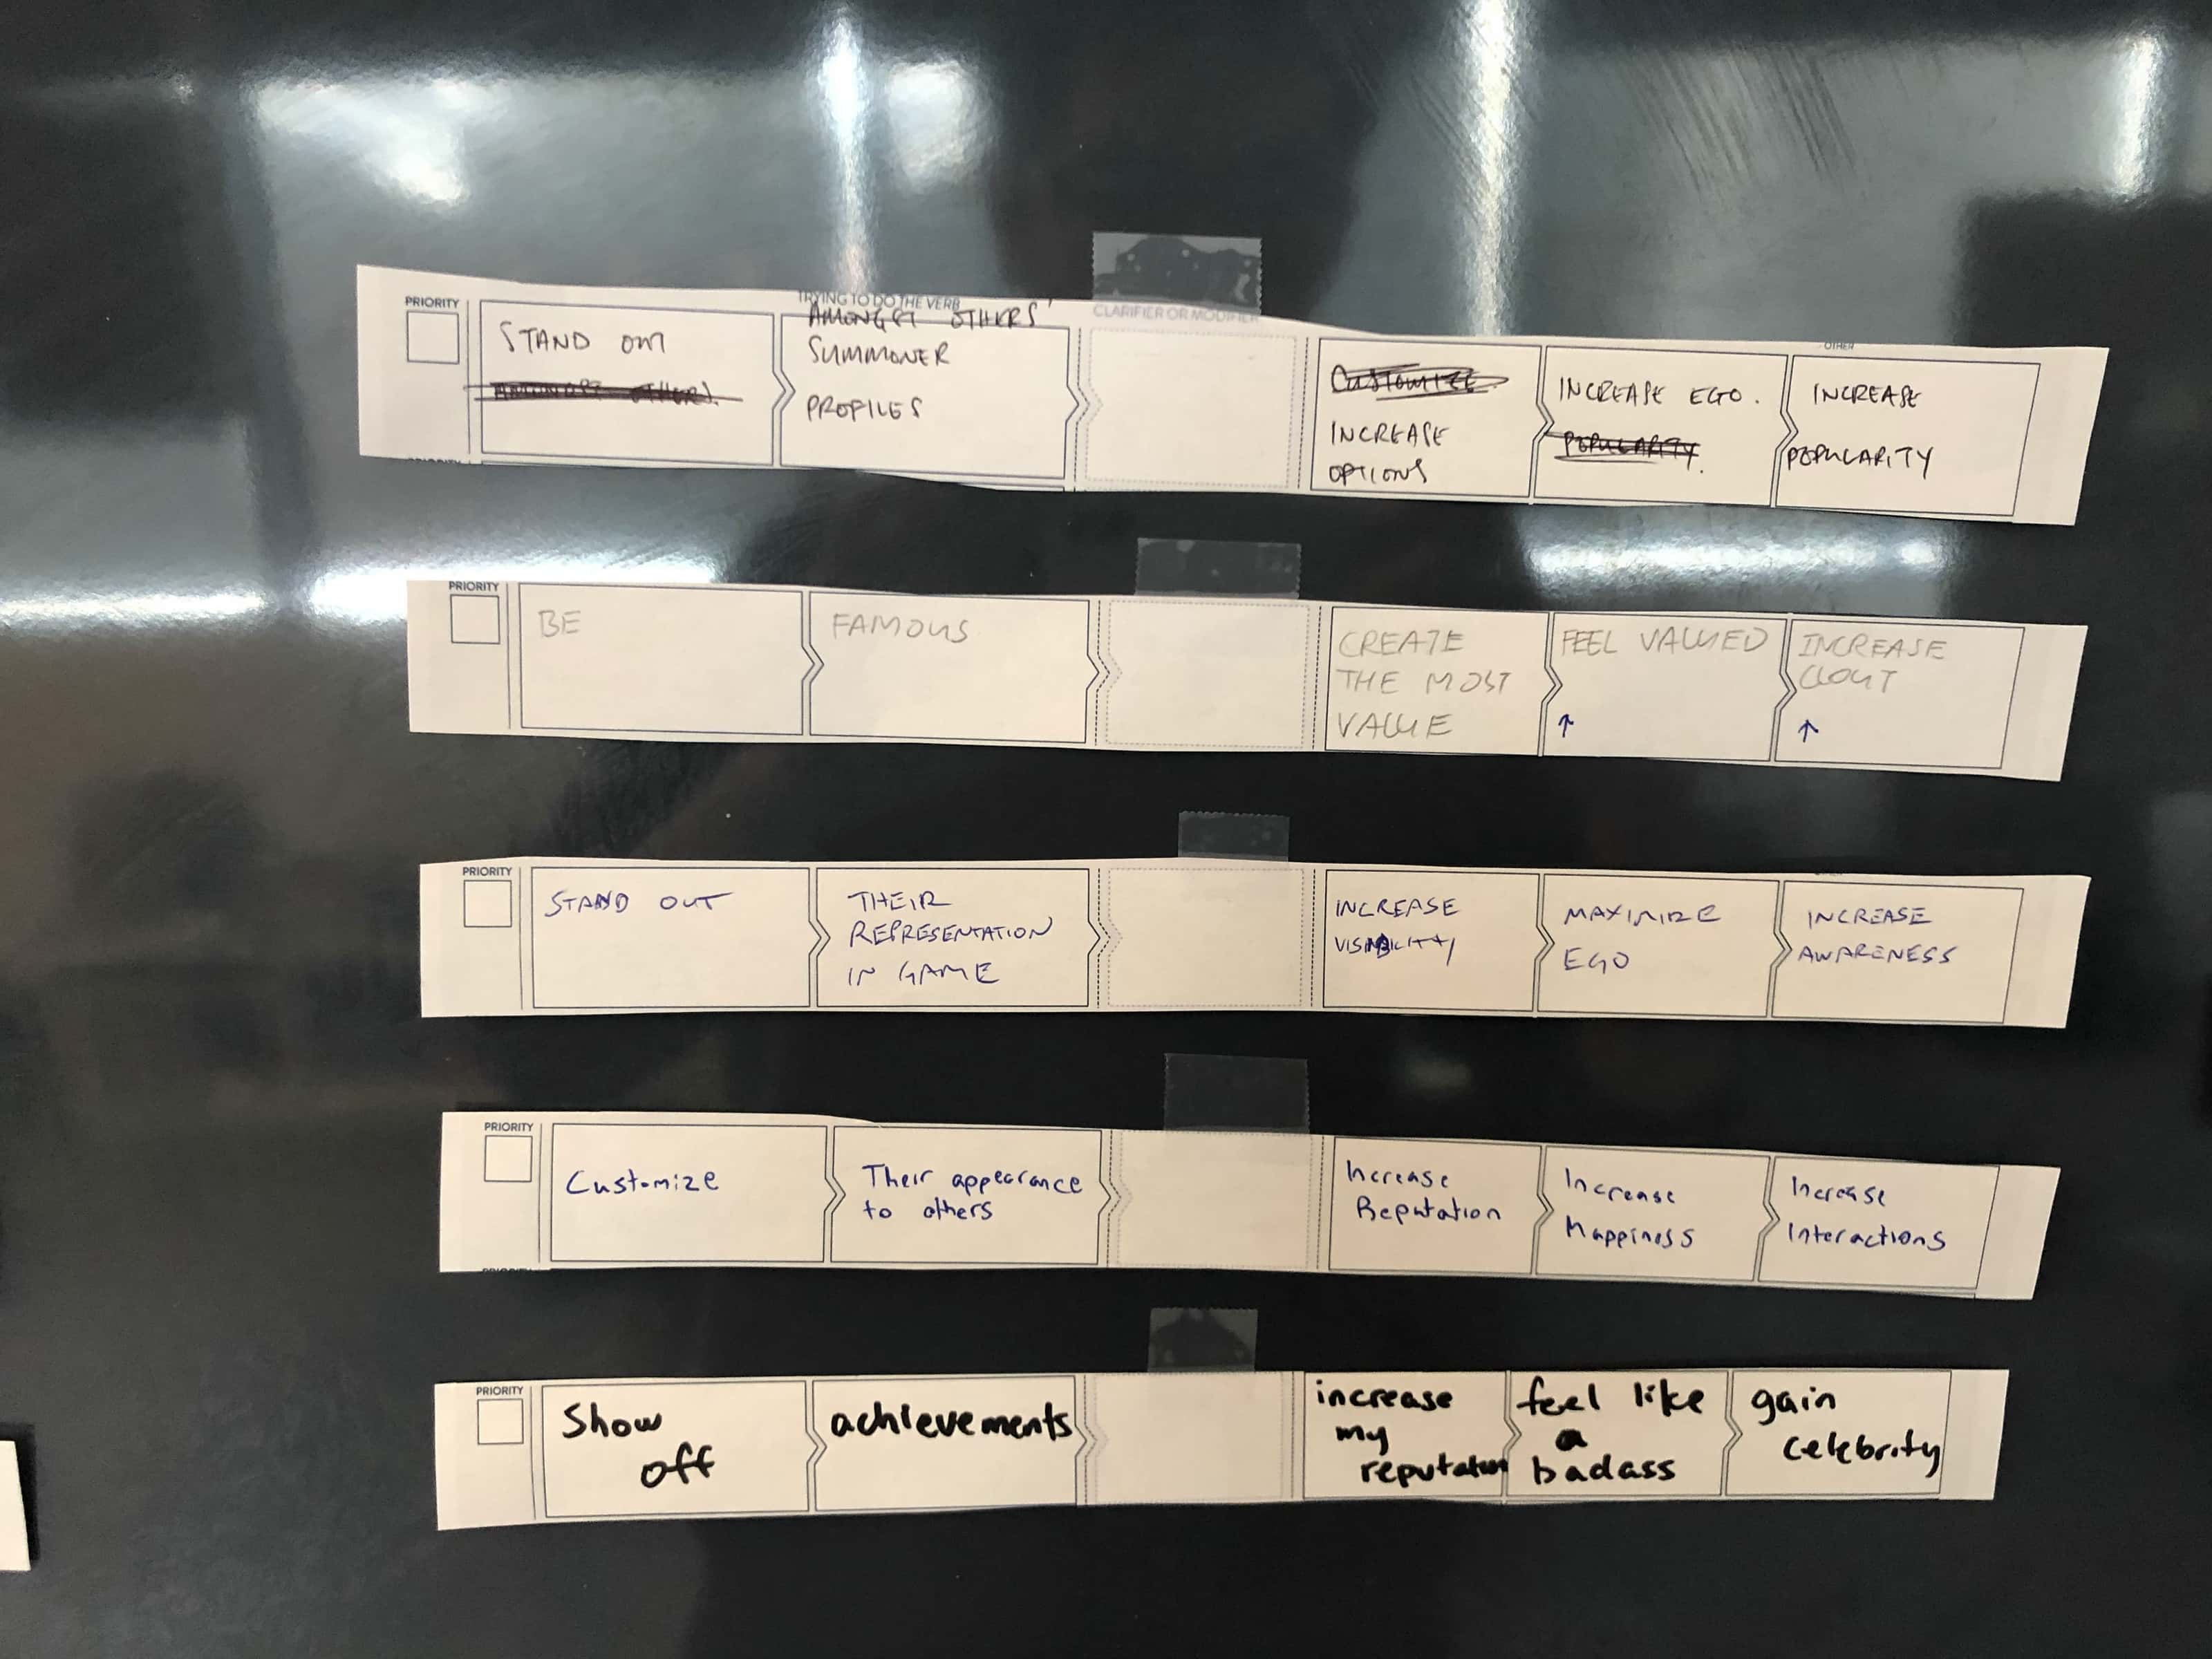 PRIORITY
TRYING TO DO THE VERB
CLARIFIER OR MODIFIER
OTHER
STAND OUT
AMONGST OTHERS.
AMONGST OTHERS'
SUMMONER
PROFILES
CUSTOMIZE
INCREASE
OPTIONS
INCREASE EGO.
POPULARITY.
INCREASE
POPULARITY
PRIORITY
PRIORITY
BE
FAMOUS
CREATE
THE MOST
VALUE
FEEL VALUED
↑
INCREASE
CLOUT
↑
PRIORITY
STAND OUT
THEIR
REPRESENTATION
IN GAME
INCREASE
VISIBILITY
MAXIMIZE
EGO
INCREASE
AWARENESS
PRIORITY
Customize
Their appearance
to others
Increase
Reputation
Increase
Happiness
Increase
Interactions
PRIORITY
PRIORITY
Show
off
achievements
increase
my
reputation
feel like
a
badass
gain
celebrity